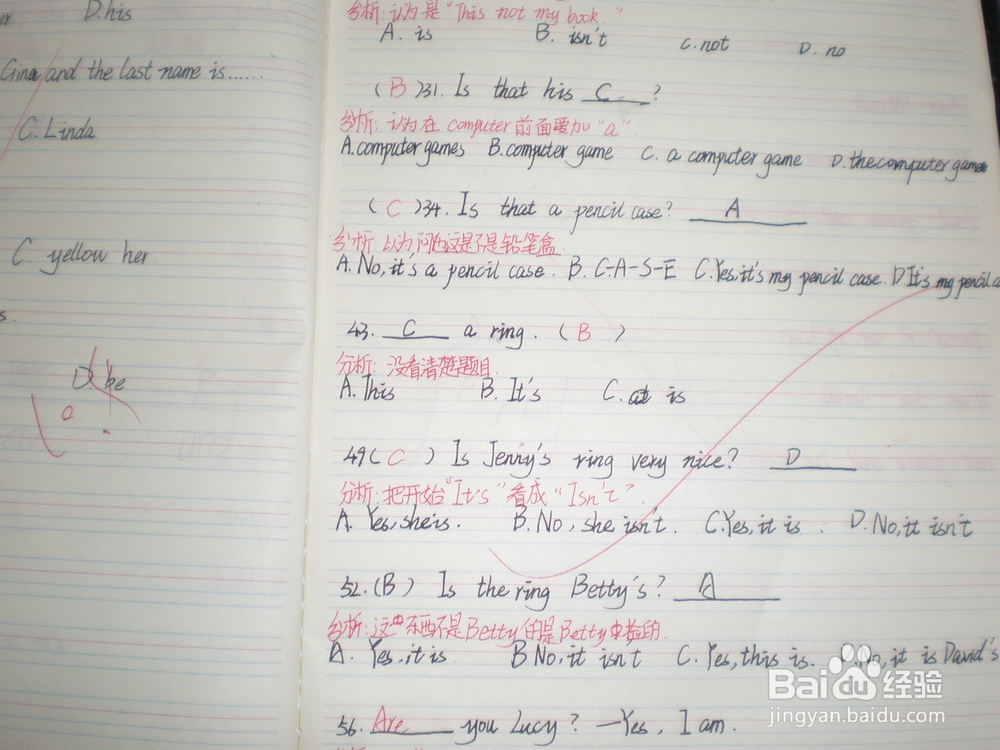 er D.his
Gina and the last name is......
C. Linda
C. yellow her
s.
D. be
分析:认为是"This not my book."
A. is B. isn't C. not D. no
(B)31. Is that his C ?
分析:认为在 computer 前面要加 "a".
A. computer games B. computer game C. a computer game D. the computer game
(C)34. Is that a pencil case? A
分析:以为问的这是不是铅笔盒.
A. No, it's a pencil case. B. C-A-S-E C. Yes, it's my pencil case. D It's my pencil ca
43. C a ring. (B)
分析:没看清楚题目.
A. This B. It's C. at is
49(C) Is Jenny's ring very nice? D
分析:把开始"It's"看成"Isn't".
A. Yes, she is. B. No, she isn't. C. Yes, it is. D. No, it isn't
52.(B) Is the ring Betty's? A
分析:这 东西不是Betty的是Betty 捡的.
A. Yes, it is B No, it isn't C. Yes, this is. No, it is David's
56. Are you Lucy? —Yes, I am.
分析:
Baidu经验
jingyan.baidu.com